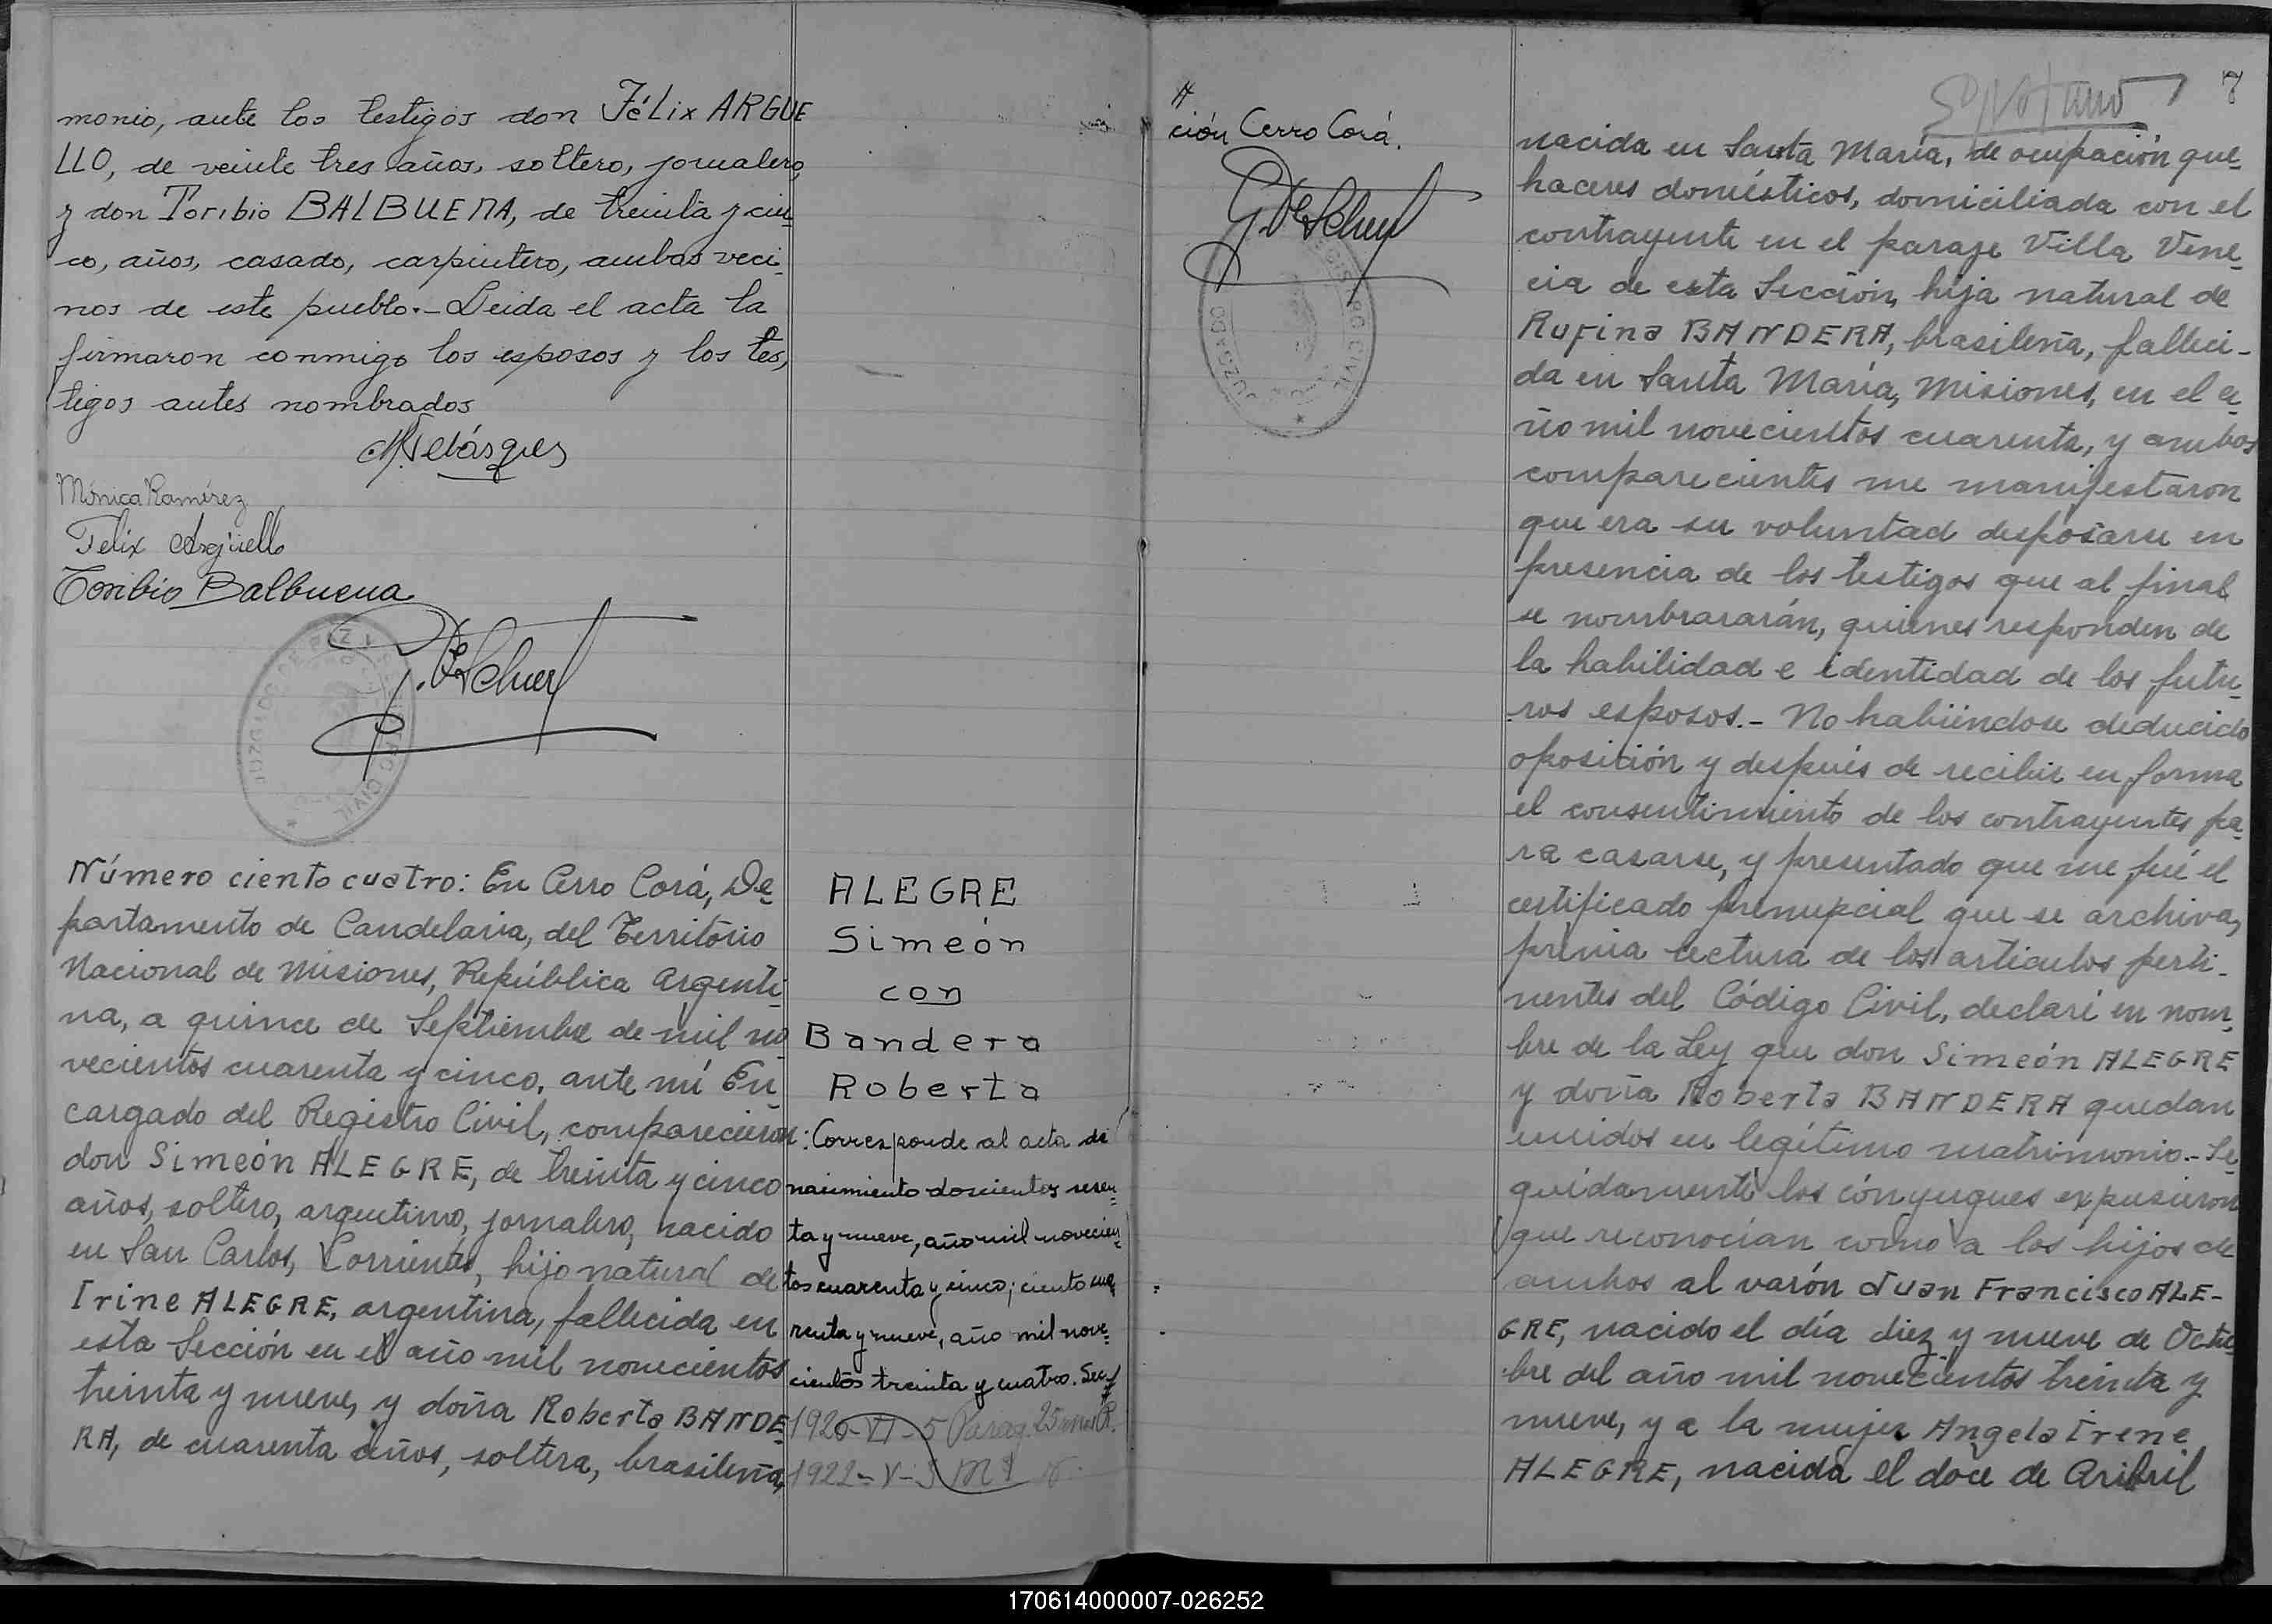 monio, ante los testigos don Félix ARGUE
LLO, de veinte tres años, soltero, jornalero,
y don Toribio BALBUENA, de treinta y cin-
co, años, casado, carpintero, ambos veci-
nos de este pueblo.- Leida el acta la
firmaron conmigo los esposos y los tes-
tigos antes nombrados
M. Velásques
Mónica Ramírez
Felix Argüello
Toribio Balbuena
JUZGADO DE PAZ Y REGISTRO CIVIL
Número ciento cuatro: En Cerro Corá, De-
partamento de Candelaria, del Territorio
Nacional de Misiones, República Argenti-
na, a quince de Septiembre de mil no
vecientos cuarenta y cinco, ante mí En-
cargado del Registro Civil, comparecieron:
don Simeón ALEGRE, de treinta y cinco
años, soltero, argentino, jornalero, nacido
en San Carlos, Corrientes, hijo natural de
Irine ALEGRE, argentina, fallecida en
esta Sección en el año mil novecientos
treinta y nueve, y doña Roberta BANDE-
RA, de cuarenta años, soltera, brasileña,
ALEGRE
Simeón
con
Bandera
Roberta
Corresponde al acta de
nacimiento doscientos sesen-
ta y nueve, año mil novecien-
tos cuarenta y cinco; ciento cua-
renta y nueve, año mil nove-
cientos treinta y cuatro. Sec
1920-VI-5
1922-V-5
ción Cerro Corá.
JUZGADO REGISTRO CIVIL
7
nacida en Santa María, de ocupación que-
haceres domésticos, domiciliada con el
contrayente en el paraje Villa Vene-
cia de esta Sección, hija natural de
Rufina BANDERA, brasileña, falleci-
da en Santa María, Misiones, en el a-
ño mil novecientos cuarenta, y ambos
comparecientes me manifestaron
que era su voluntad desposarse en
presencia de los testigos que al final
se nombrararán, quienes responden de
la habilidad e identidad de los futu-
ros esposos.- No habiéndose deducido
oposición y después de recibir en forma
el consentimiento de los contrayentes pa-
ra casarse, y presentado que me fué el
certificado prenupcial que se archiva,
previa lectura de los artículos perti-
nentes del Código Civil, declaré en nom-
bre de la Ley que don Simeón ALEGRE
y doña Roberta BANDERA quedan
unidos en legítimo matrimonio.- Se-
guidamente los cónyugues expusieron
que reconocían como a los hijos de
ambos al varón Juan Francisco ALE-
GRE, nacido el día diez y nueve de Octu-
bre del año mil novecientos treinta y
nueve, y a la mujer Angela Irene
ALEGRE, nacida el doce de Aribril
170614000007-026252